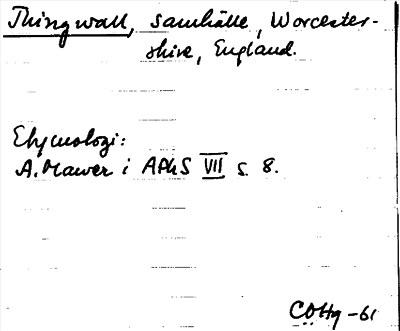 Thingwall, samhälle, Worcester-
shire, England.
Etymologi:
A. Mawer i APhS VII s. 8.
COHg -61